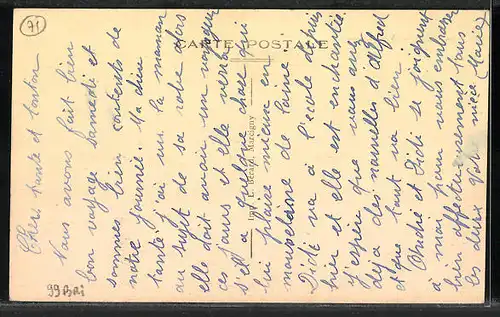 71
CARTE POSTALE
Chers tante et tonton
Nous avons fait bien
bon voyage samedi et
sommes bien contents de
notre journée. Ma
tante j'ai vu la maman
au sujet de sa robe alors
elle doit avoir un voyageur
ces jours et elle verra
s'il a quelque chose qui
lui plaise mieux en
mousseline de laine
Didi va à l'école depuis
hier et elle est enchantée
J'espère que vous avez
déjà des nouvelles d'Alfred
et que tout va bien
et Didi se joignent
à moi pour vous embrasser
bien affectueusement tous
les deux Votre nièce (Marie)
99 BAI